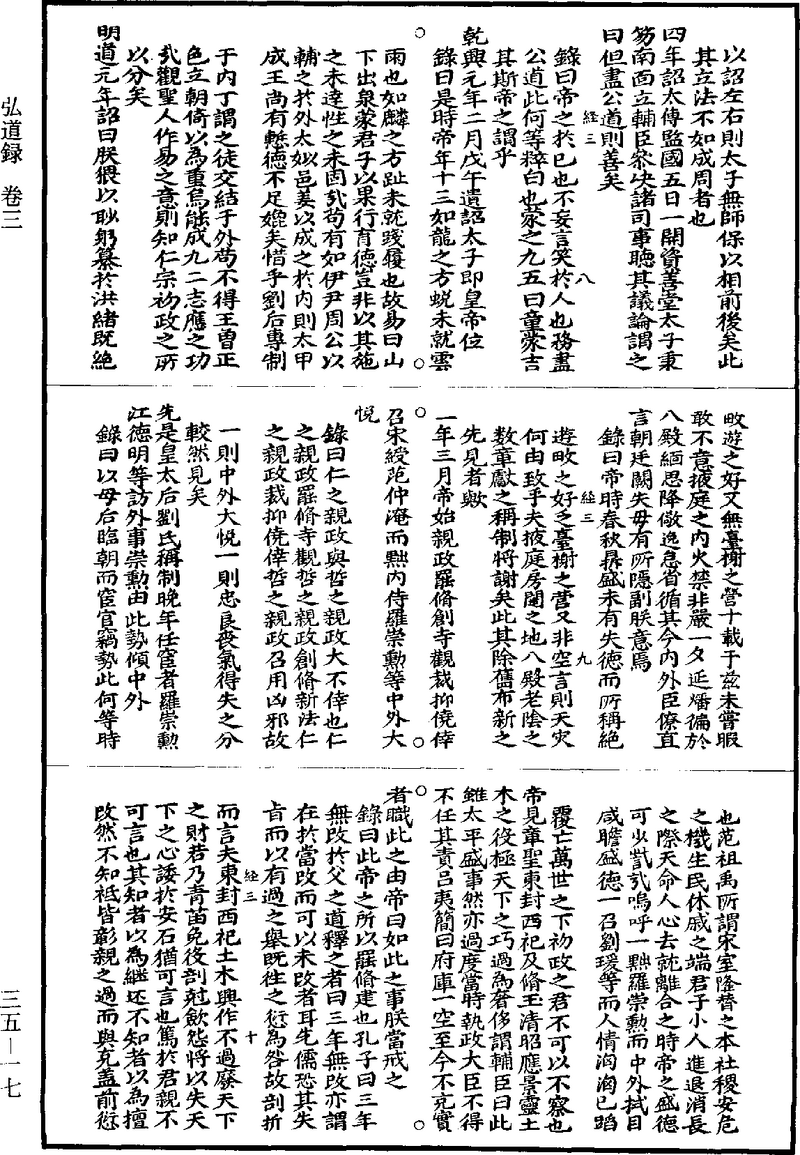 弘道録　卷三
以詔左右則太子無師保以相前後矣此
其立法不如成周者也
四年詔太傅監國五日一開資善堂太子秉
笏南面立輔臣叅决諸司事聽其議論謂之
曰但盡公道則善矣
經三
八
錄曰帝之於已也不妄言笑於人也務盡
公道此何等粹白也蒙之九五曰童蒙吉
其斯帝之謂乎
乾興元年二月戊午遺詔太子即皇帝位
錄曰是時帝年十三如龍之方蛻未就雲
○
○
雨也如麟之方趾未就踐履也故易曰山
下出泉蒙君子以果行育德豈非以其施
之未達性之未固㢤苟有如伊尹周公以
輔之於外太姒邑姜以成之於内則太甲
成王尚有慙德不足媲矣惜乎劉后專制
于内丁謂之徒交結于外苟不得王曽正
色立朝倚以為重焉能成九二志應之功
㢤觀聖人作易之意則知仁宗初政之所
以分矣
明道元年詔曰朕猥以眇躬纂於洪緒既絶
畋遊之好又無臺榭之營十載于兹未嘗暇
敢不意掖庭之内火禁非嚴一夕延燔徧於
八殿緬思降儆逸怠省循其令内外臣僚直
言朝廷闕失毋有所隱副朕意焉
錄曰帝時春秋鼎盛未有失德而所稱絶
經三
九
遊畋之好乏臺榭之營又非空言則天灾
何由致乎夫掖庭房闥之地八殿老陰之
數章獻之稱制將謝矣此其除舊布新之
先見者歟
一年三月帝始親政罷脩創寺觀裁抑僥倖
○
○
召宋綬范仲淹而黜内侍羅崇勲等中外大
悦
錄曰仁之親政與哲之親政大不侔也仁
之親政罷脩寺觀哲之親政創脩新法仁
之親政裁抑僥倖哲之親政召用凶邪故
一則中外大悦一則忠良喪氣得失之分
較然見矣
先是皇太后劉氏稱制晚年任宦者羅崇勲
江德明等訪外事崇勲由此勢傾中外
錄曰以母后臨朝而宦官竊勢此何等時
也范祖禹所謂宋室隆替之本社稷安危
之機生民休戚之端君子小人進退消長
之際天命人心去就離合之時帝之盛德
可少㢤㢤嗚呼一黜羅崇勲而中外拭目
咸瞻盛德一召劉瑗等而人情洶洶已蹈
覆亡萬世之下初政之君不可以不察也
帝見章聖東封西祀及脩玉清昭應景靈土
木之役極天下之巧過為奢侈謂輔臣曰此
雖太平盛事然亦過度當時執政大臣不得
不任其責吕夷簡曰府庫一空至今不充實
○
○
者職此之由帝曰如此之事朕當戒之
錄曰此帝之所以罷脩建也孔子曰三年
無改於父之道釋之者曰三年無改亦謂
在於當改而可以未改者耳先儒恐其失
㫖而以有過之舉既徃之愆為咎故剖析
經三
十
而言夫東封西祀土木興作不過廢天下
之財若乃青苗免役剖尅斂怨將以失天
下之心諉於安石猶可言也篤於君親不
可言也其知者以為繼述不知者以為擅
改然不知祗皆彰親之過而與克盖前愆
三五—一七